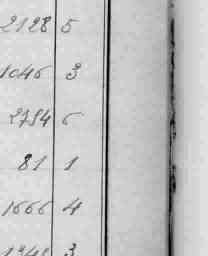 2128 5
1046 3
2794 6
81 1
1666 4
3